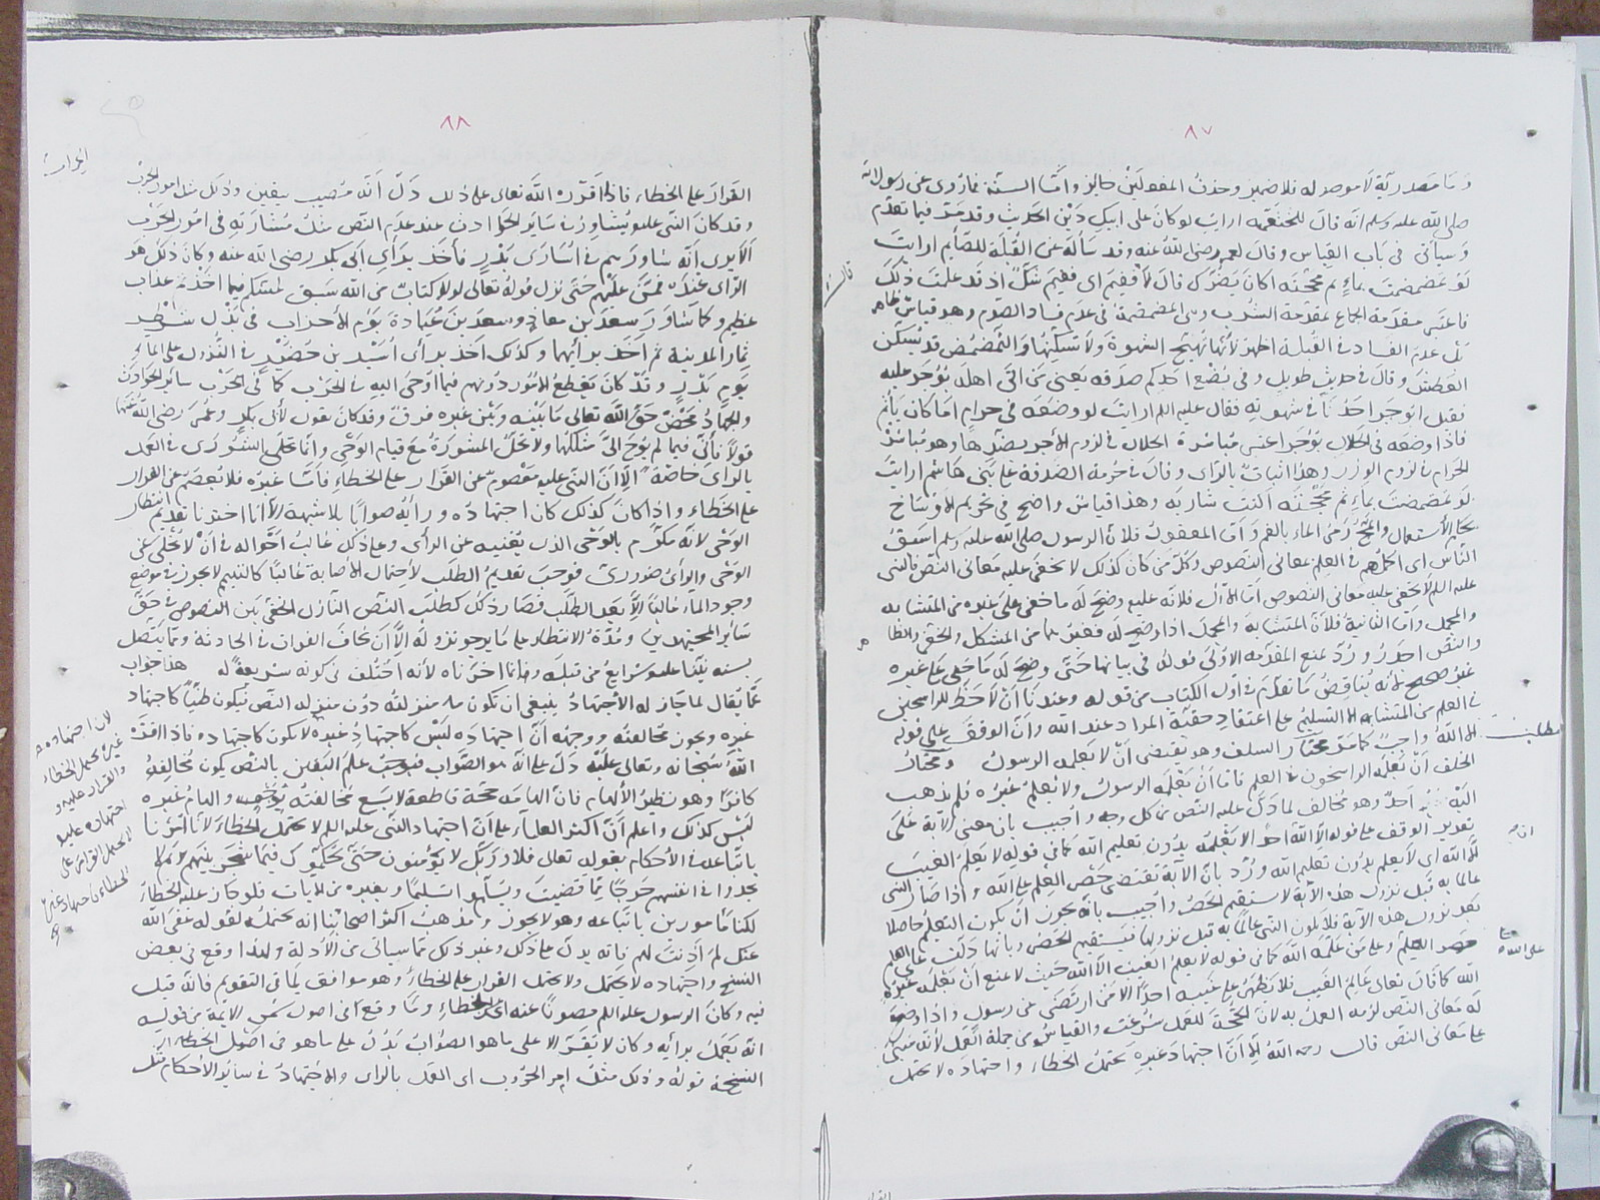 ٨٧
وما مصدرية لا موصوله فلا ضمير وحذف المفعولين جايز واما السنة فما روى عن رسول الله
صلى الله عليه وسلم انه قال للخثعمية ارايت لو كان على ابيك دين الحديث وقد مر فيما تقدم
وسيأتي في باب القياس وقال لعمر رضى الله عنه وقد سأله عن القبلة للصائم ارايت
لو تمضمضت بماء ثم مججته اكان يضرك قال لا ففيم اى ففيم شك اذ قد علمت ذلك
فاعتبر مقدمة الجماع بمقدمة الشرب وهى المضمضة في عدم فساد الصوم وهو قياس ظاهر
عدم الفساد في القبلة اظهر لانها تهيج الشهوة ولا تسكنها والتمضمض قد يسكن
العطش وقال في حديث طويل وفي بضع احدكم صدقه يعنى من اتى اهله يؤجر عليه
فقيل ايؤجر احدنا في شهوته فقال عليه السلام ارايت لو وضعه في حرام اما كان يأثم
فاذا وضعه في الحلال يؤجر اعتبر مباشرة الحلال في لزوم الاجر بضدها وهو مباشرة
الحرام في لزوم الوزر وهذا اثبات بالراى وقال في حرمة الصدقة على بنى هاشم ارايت
لو تمضمضت بماء ثم مججته اكنت شاربه وهذا قياس واضح في تحريم الاوساخ
بحكم الاستعمال والمج رمى الماء بالفم واما المعقول فلان الرسول صلى الله عليه وسلم اسبق
الناس اى اكملهم في العلم بمعانى النصوص وكل من كان كذلك لا يخفى عليه معانى النص فالنبى
عليه السلام لا يخفى عليه معانى النصوص اما الاول فلانه عليه وضح له ما خفى على غيره من المتشابه
والمجمل واما الثانية فلان المتشابه والمجمل اذا وضح له فغيرهما من المشكل والخفى والظاهر
والنص احذر ورد بمنع المقدمة الاولى قوله في بيانها حتى وضح له ما خفى على غيره
غير صحيح لانه يناقض ما تقدم في اول الكتاب من قوله وعندنا ان لا حظ للراسخين
في العلم من المتشابه الا التسليم على اعتقاد حقية المراد عند الله وان الوقف على قوله
الا الله واجب كما مر مختار السلف وهو يقتضى ان لا يعلمه الرسول ومختار
الخلف ان يعلمه الراسخون في العلم فاما ان يعلمه الرسول ولا يعلم غيره فلم يذهب
اليه احد وهو مخالف لما دل عليه النص من كل وجه واجيب بان معنى الآية على
تقدير الوقف على قوله الا الله احد لا يعلمه بدون تعليم الله كما في قوله لا يعلم الغيب
الا الله اى لا يعلم بدون تعليم الله ورد بان الآية تقتضى حصر العلم على الله واذا صار النبى
عالما به قبل نزول هذه الآية لا يستقيم الحصر واجيب بانه يجوز ان يكون التعليم حاصلا
بعد نزول هذه الآية فلا يكون النبى عالما به قبل نزولها فيستقيم الحصر وبانها دلت على
حصر العلم وعلى من علمه الله كما في قوله لا يعلم الغيب الا الله حيث لا يمنع ان يعلمه غيره
الله كما قال تعالى عالم الغيب فلا يظهر على غيبه احدا الا من ارتضى من رسول واذا وضح
له معانى النص لزمه العمل به لان الحجة للعمل شرعت والقياس من جملة العمل لانه مبنى
على معانى النص قال رحمه الله الا ان اجتهاد غيره يحتمل الخطاء واجتهاده لا يحتمل
قال
مطلب
على الله
القرار
٨٨
القرار على الخطاء فاذا اقره الله تعالى على ذلك دل انه مصيب بيقين وذلك مثل امور الحرب
وقد كان النبى عليه يشاور في ساير الحوادث عند عدم النص مثل مشاورته في امور الحرب
الا يرى انه شاورهم في اسارى بدر فأخذ برأى ابى بكر رضى الله عنه وكان ذلك هو
الراى عنده فمن عليهم حتى نزل قوله تعالى لولا كتاب من الله سبق لمسكم فيما اخذتم عذاب
عظيم وكما شاور سعد بن معاذ وسعد بن عبادة يوم الاحزاب في بذل شطر
ثمار المدينة ثم اخذ برأيهما وكذلك اخذ برأى اسيد بن حضير في النزول على الماء
يوم بدر وقد كان يقطع الامر دونهم فيما اوحى اليه في الحرب كما في سائر الحوادث
والجهاد محض حق الله تعالى ما بينه وبين غيره فرق وقد كان يقول لابى بكر وعمر رضى الله عنهما
قولا فانى فيما لم يوح الى مثلكما ولا تحل المشورة مع قيام الوحى وانما تحل الشورى في العمل
بالراى خاصة الا ان النبى عليه معصوم عن القرار على الخطاء فاما غيره فلا يعصم عن القرار
على الخطاء واذا كان كذلك كان اجتهاده ورأيه صوابا بلا شبهة الا انا اخترنا تقديم انتظار
الوحى لانه مكرم بالوحى الذى يغنيه عن الرأى وعلى ذلك غالب احواله في ان لا يخلى عن
الوحى والرأى ضرورى فوجب تقديم الطلب لاحتمال الاصابة غالبا كالتيمم لا يجوز في موضع
وجود الماء غالبا الا بعد الطلب فصار ذلك كطلب النص النازل الخفى بين النصوص في حق
سائر المجتهدين ومدة الانتظار على ما يرجو نزوله الا ان يخاف الفوت في الحادثة ومما يتصل
بسنة نبينا عليه شرايع من قبله وانما اخرناه لانه اختلف في كونه شريعة له هذا جواب
عما يقال لما جاز له الاجتهاد ينبغى ان تكون منزلته دون منزلة النص فيكون ظنيا كاجتهاد
غيره ويجوز مخالفته ووجهه ان اجتهاده ليس كاجتهاد غيره لا يكون كاجتهاده فاذا اقره
الله سبحانه وتعالى عليه دل على انه هو الصواب فيوجب علم اليقين بالنص فيكون مخالفه
كافرا وهو نظير الالهام فان الهامه حجة قاطعة لا يسع مخالفته بوجه والهام غيره
ليس كذلك واعلم ان اكثر العلماء على ان اجتهاد النبى عليه السلام لا يحتمل الخطاء لانا امرنا
باتباعه في الاحكام بقوله تعالى فلا وربك لا يؤمنون حتى يحكموك فيما شجر بينهم ثم لا
يجدوا في انفسهم حرجا مما قضيت ويسلموا تسليما وبغيره من الآيات فلو جاز عليه الخطاء
لكنا مأمورين باتباعه وهو لا يجوز ومذهب اكثر اصحابنا انه يحتمله لقوله عفى الله
عنك لم اذنت لهم فانه يدل على ذلك وغير ذلك مما سيأتى من الادلة ولهذا وقع في بعض
النسخ واجتهاده لا يحتمل ولا يحتمل القرار على الخطاء وهو موافق لما في التقويم فانه قيل
فيه وكان الرسول عليه السلام مصونا عنه اى الخطاء وما وقع في اصول شمس الائمة من قوله
انه يعمل برأيه وكان لا يقر الا على ما هو الصواب يدل على ما هو في اصول الخطاء
النسخة قوله وذلك مثل امر الحروب اى العمل بالراى والاجتهاد في سائر الاحكام مثل
لان اجتهاده
غيره يحتمل الخطاء
والقرار عليه و
اجتهاده عليه
لا يحتمل القرار على
الخطاء